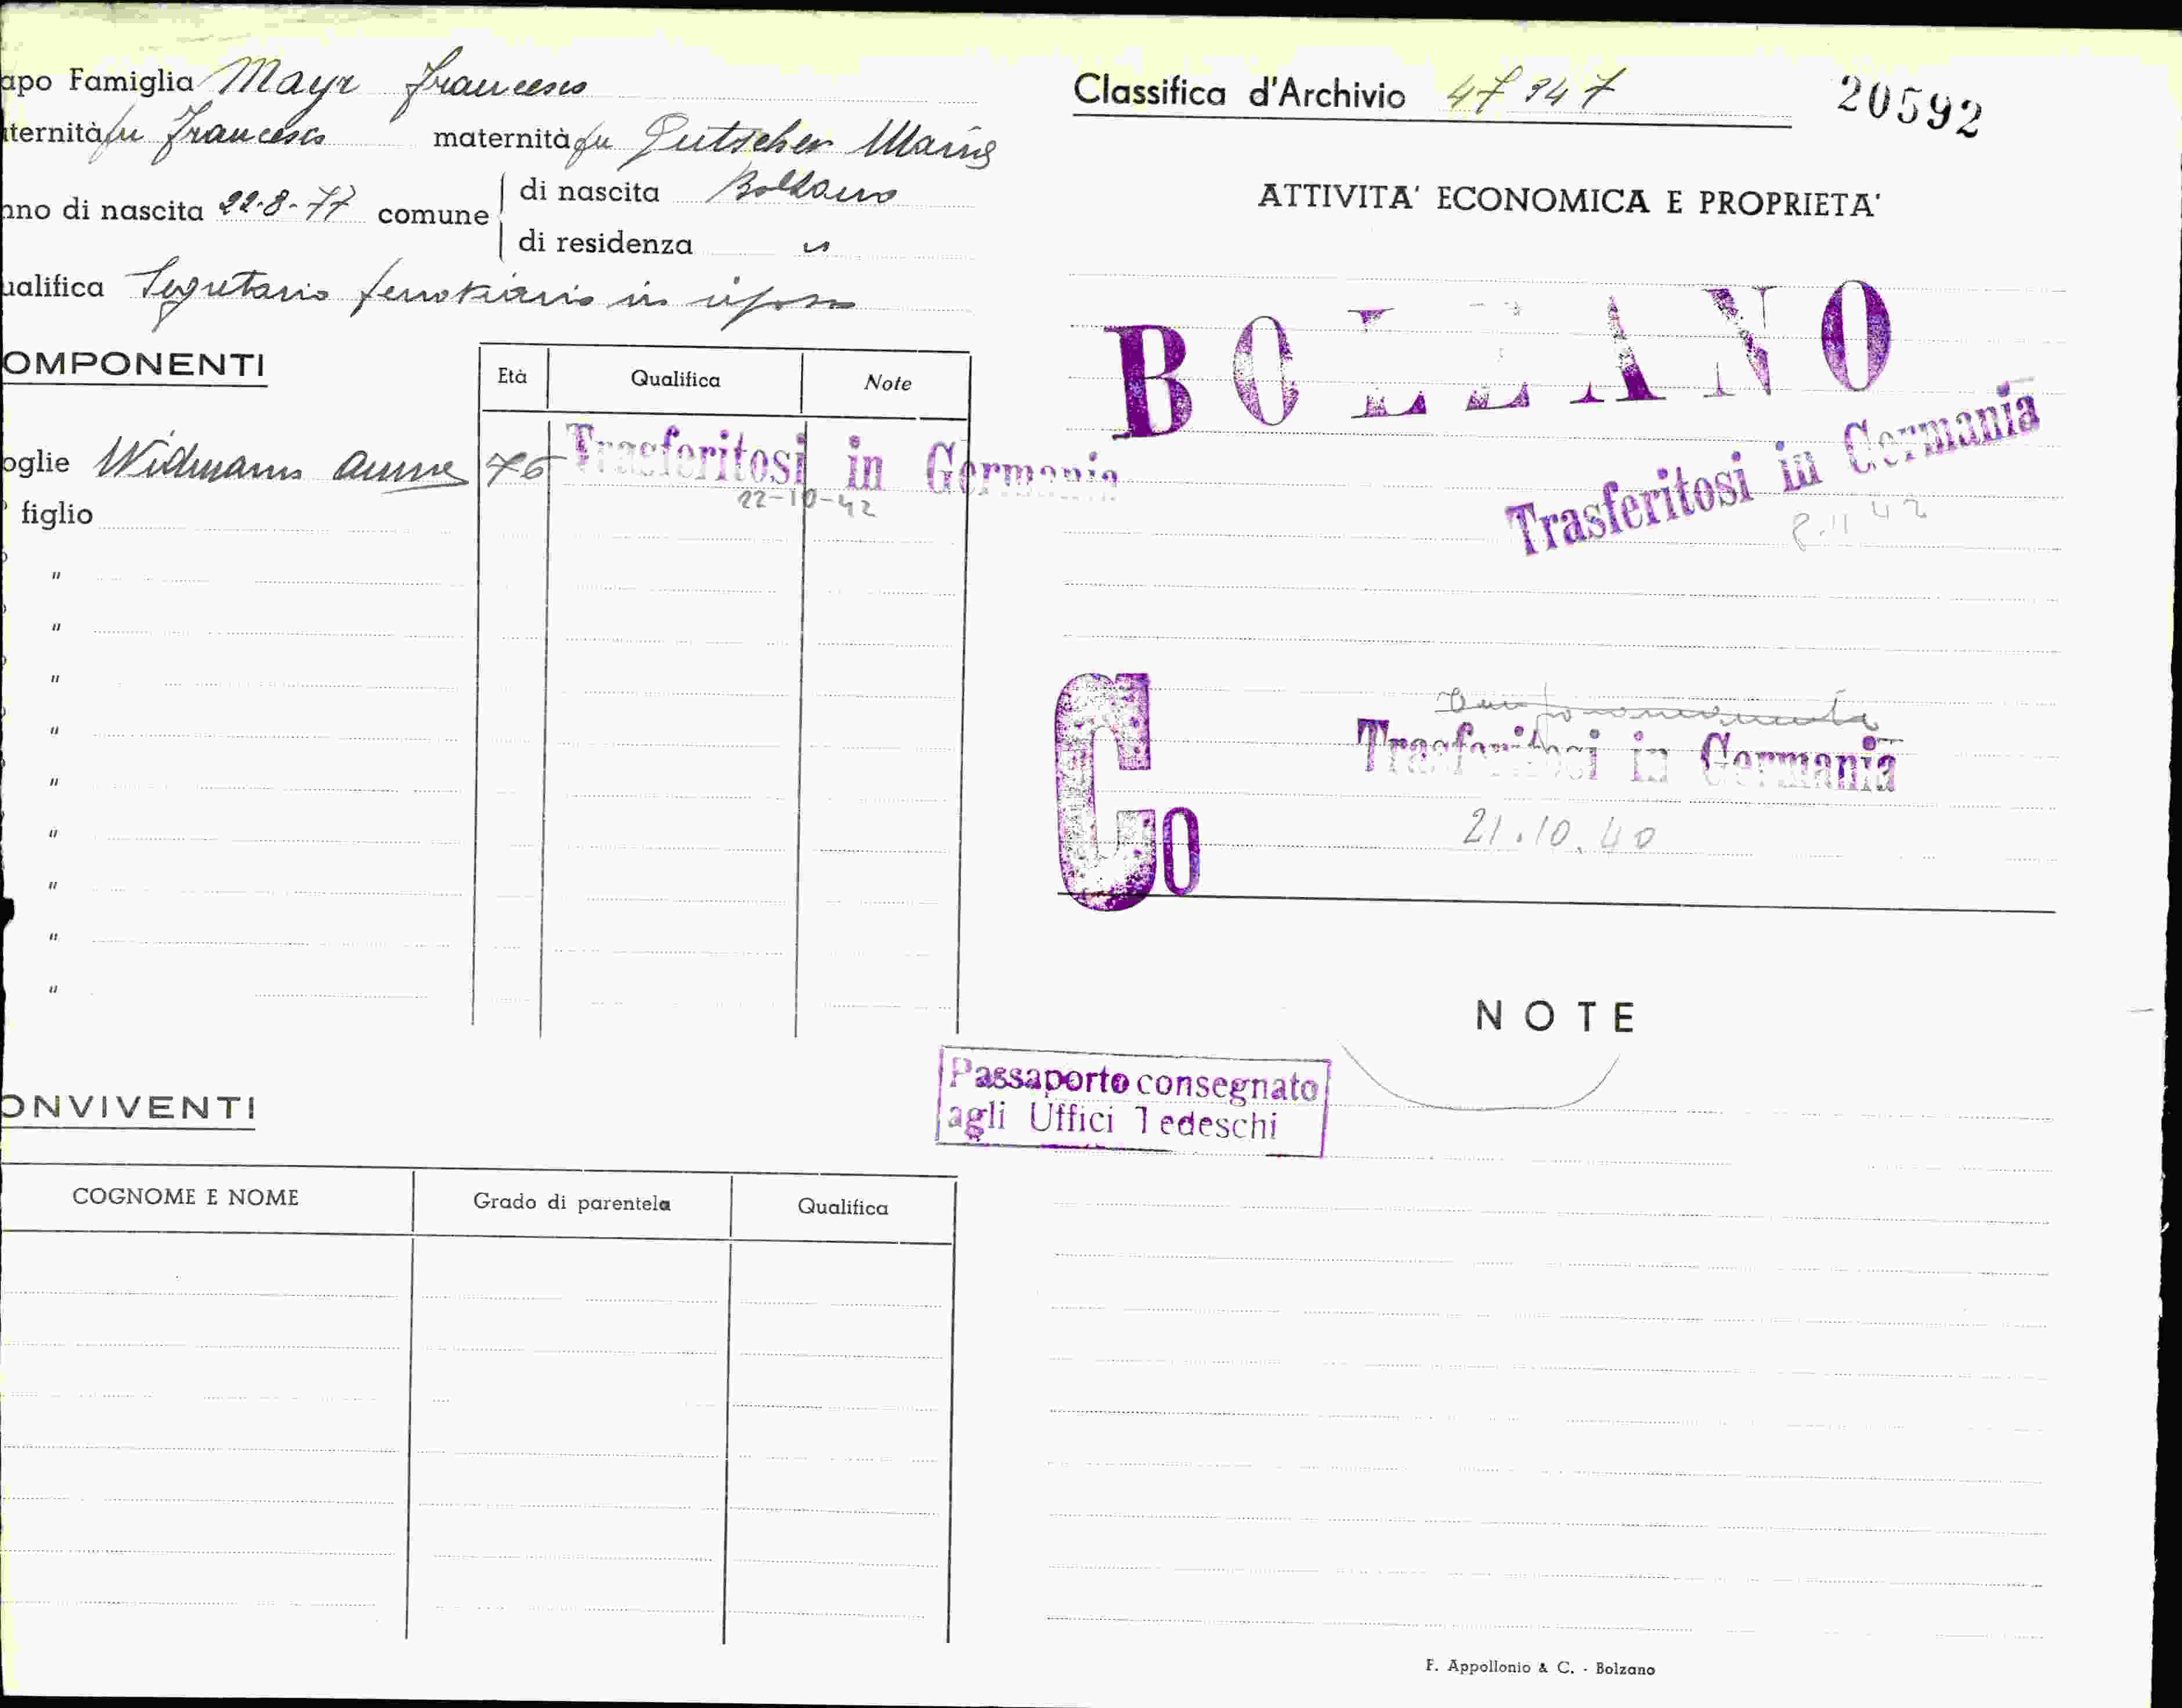 apo Famiglia Mayr Francesco
ternità fu Francesco maternità fu Putscher Maria
nno di nascita 22-8-77 comune di nascita Bolzano
di residenza "
ualifica Segretario ferroviario in riposo
OMPONENTI
Età Qualifica Note
oglie Widmann Anna 76 Trasferitosi in Germania
22-10-42
figlio
"
"
"
"
"
"
"
"
"
ONVIVENTI
COGNOME E NOME Grado di parentela Qualifica
Classifica d'Archivio 47347 20592
ATTIVITA' ECONOMICA E PROPRIETA'
BOLZANO
Trasferitosi in Germania
8.11 42
Co
Trasferitosi in Germania
21.10.40
NOTE
Passaporto consegnato
agli Uffici Tedeschi
F. Appollonio & C. - Bolzano